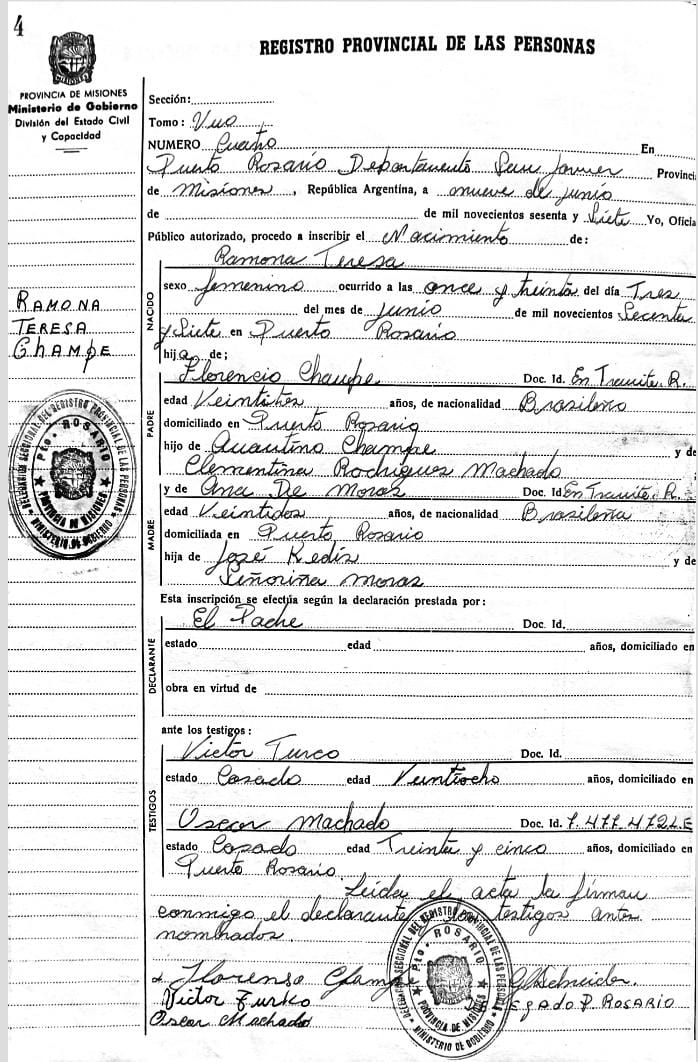 4
REGISTRO PROVINCIAL DE LAS PERSONAS
PROVINCIA DE MISIONES
Ministerio de Gobierno
División del Estado Civil
y Capacidad
Sección:
Tomo: Uno
NUMERO Cuatro En
Puerto Rosario Departamento San Javier Provinci
de Misiones, República Argentina, a nueve de junio
de de mil novecientos sesenta y Siete Yo, Oficia
Público autorizado, procedo a inscribir el Nacimiento de:
Ramona Teresa
NACIDO
sexo femenino ocurrido a las once y treinta del día Tres
del mes de junio de mil novecientos Secenta
y Siete en Puerto Rosario
RAMONA
TERESA
CHAMPE
hija de;
PADRE
Florencio Champe Doc. Id. En Tramite. R.
edad Veintitres años, de nacionalidad Brasileno
domiciliado en Puerto Rosario
hijo de Champe y de
Clementina Rodrigues Machado
MADRE
y de Ana De Moras Doc. Id En Tramite. R.
edad Veintidos años, de nacionalidad Brasileña
domiciliada en Puerto Rosario
hija de José y de
Señoriña Moras
DELEGACION SECCIONAL DEL REGISTRO PROVINCIAL DE LAS PERSONAS
Pto. ROSARIO
PROVINCIA DE MISIONES
MINISTERIO DE GOBIERNO
Esta inscripción se efectúa según la declaración prestada por:
DECLARANTE
El Padre Doc. Id.
estado edad años, domiciliado en
obra en virtud de
ante los testigos:
TESTIGOS
Victor Turco Doc. Id.
estado Casado edad Veintiocho años, domiciliado en
Oscar Machado Doc. Id. 7.477.472 L.E
estado Casado edad Treinta y cinco años, domiciliado en
Puerto Rosario.
Leida el acta la firman
conmigo el declarante y los testigos antes
nombrados.
Florenso Champe
Victor Turko
Oscar Machado
P. ROSARIO
DELEGACION SECCIONAL DEL REGISTRO PROVINCIAL DE LAS PERSONAS
Pto. ROSARIO
PROVINCIA DE MISIONES
MINISTERIO DE GOBIERNO